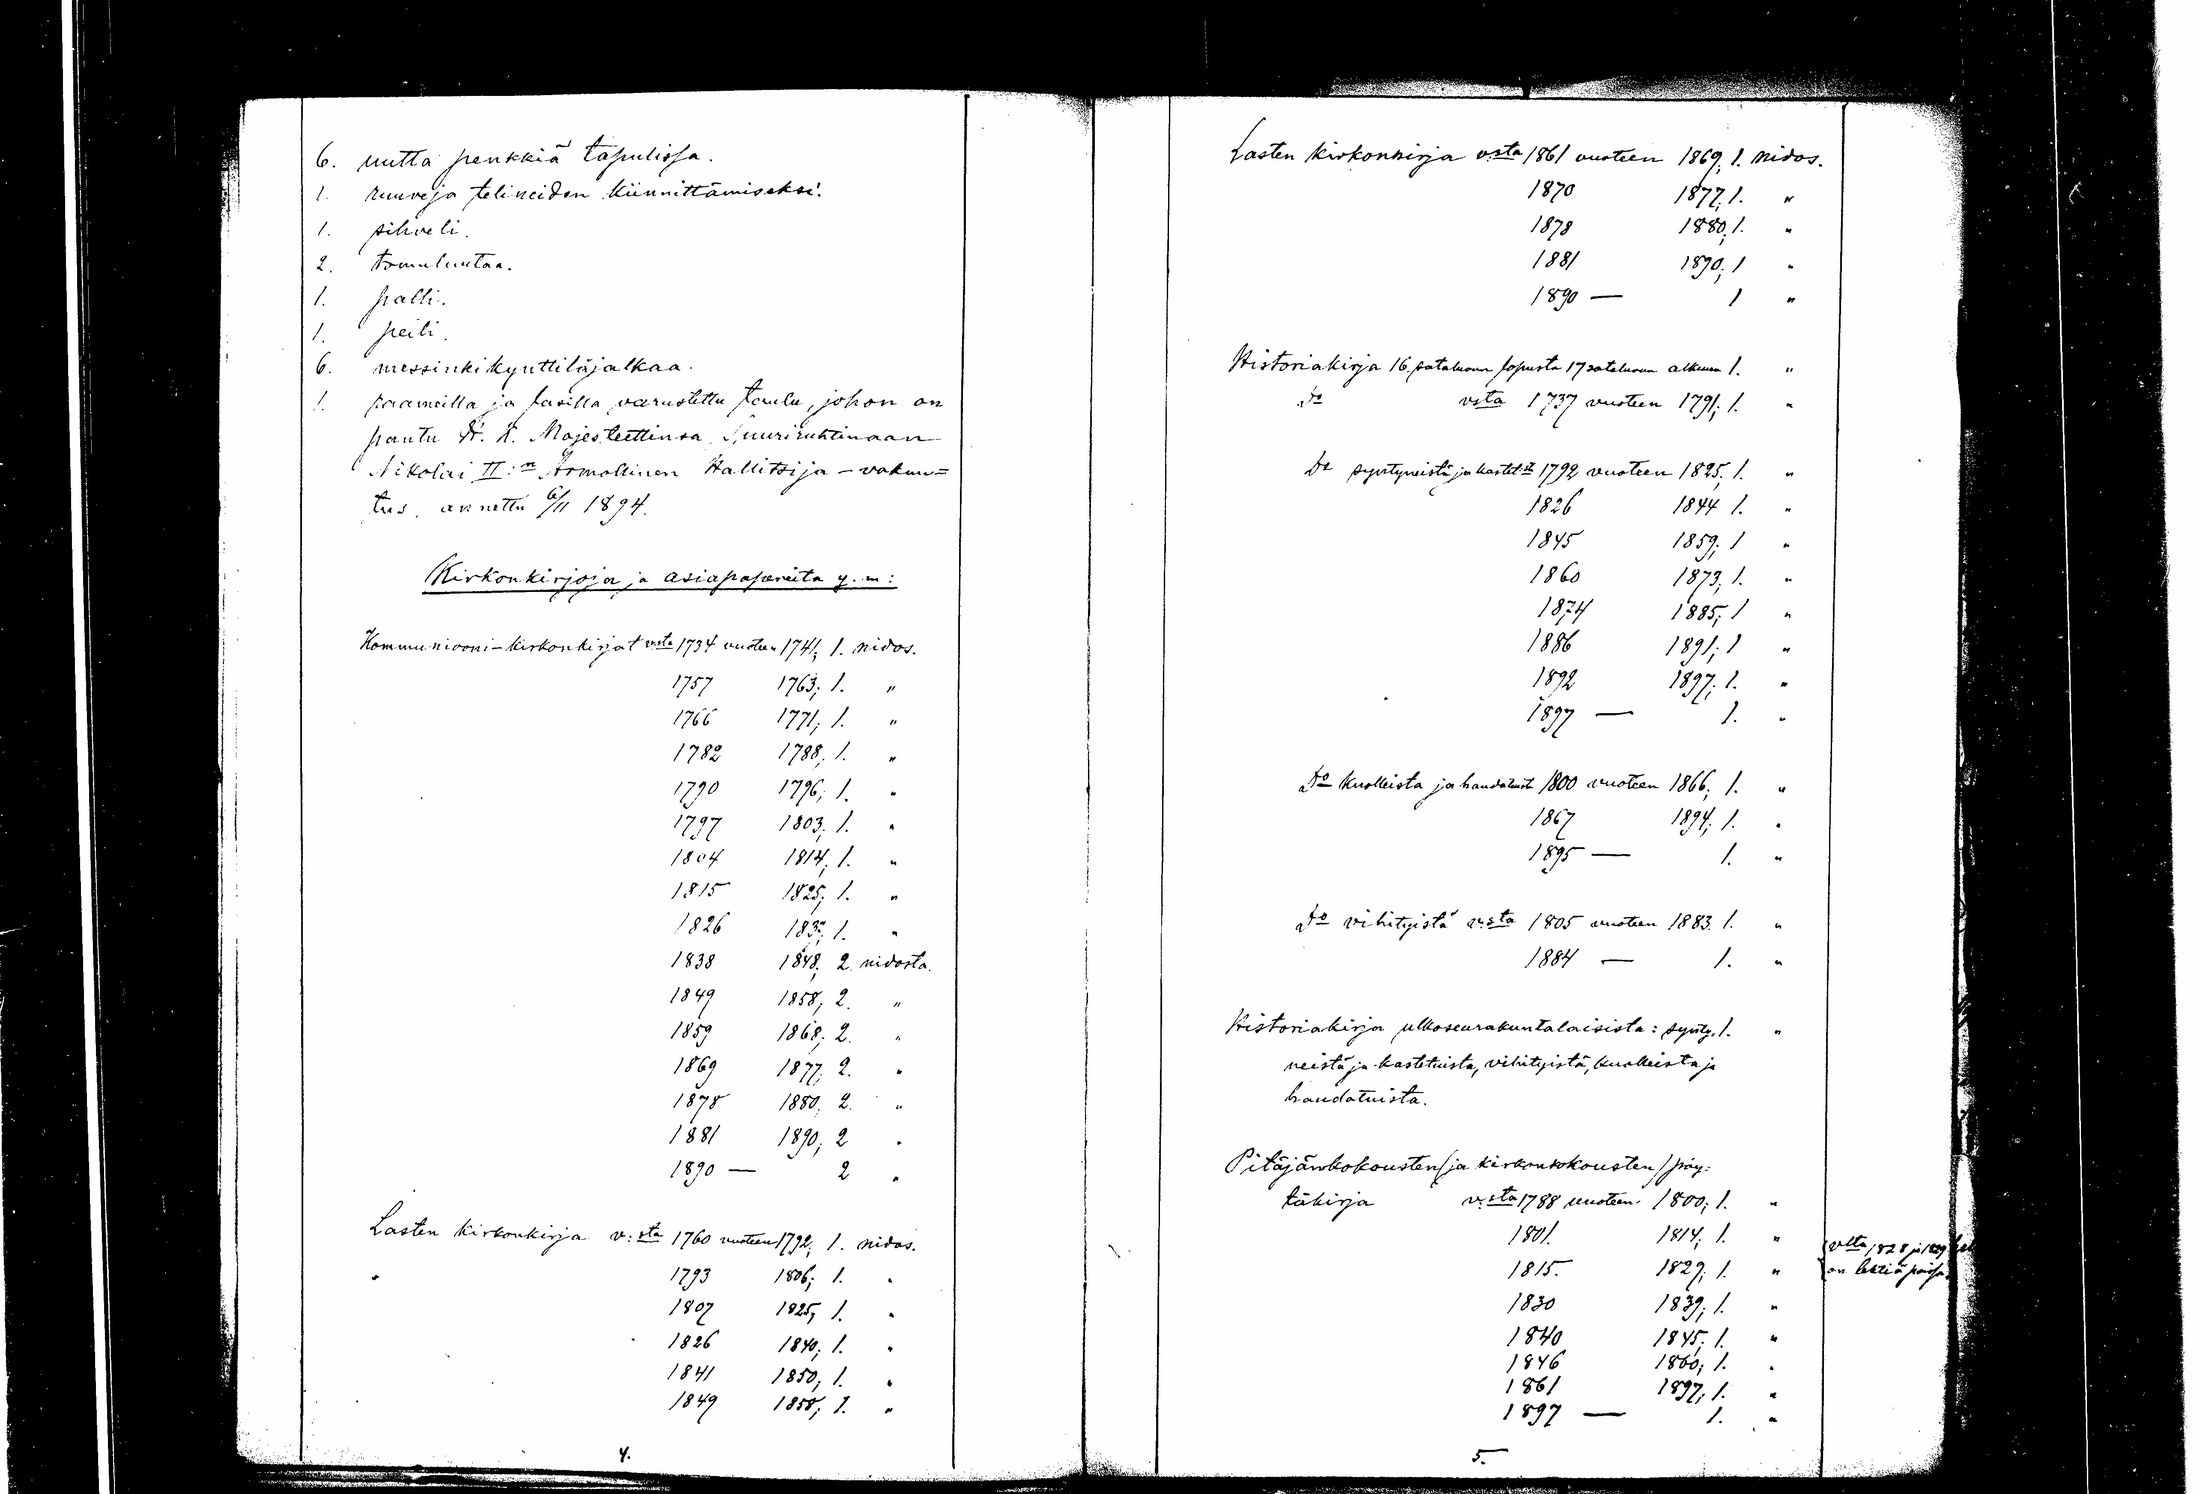 6. uutta penkkiä tapulissa.
1. ruuveja telineiden kiinnittämiseksi.
1. sihveli.
2. tomuluutaa.
1. palli.
1. peili.
6. messinkikynttiläjalkaa.
1. raameilla ja lasilla varustettu taulu, johon on
pantu H. K. Majesteettinsa Suuriruhtinaan
Nikolai II:n Armollinen Hallitsija-vakuu=
tus, annettu 6/11 1894.
Kirkonkirjoja ja asiapapereita y. m:
Kommuniooni-kirkonkirjat v:sta 1734 vuoteen 1741; 1. nidos.
1757 1763; 1. "
1766 1771; 1. "
1782 1788; 1. "
1790 1796; 1. "
1797 1803; 1. "
1804 1814; 1. "
1815 1825; 1. "
1826 1. "
1838 1848; 2. nidosta.
1849 1858; 2. "
1859 1868; 2. "
1869 1877; 2. "
1878 1880; 2. "
1881 1890; 2 "
1890 — 2 "
Lasten kirkonkirja v:sta 1760 vuoteen 1792; 1. nidos.
1793 1806; 1. "
1807 1825; 1. "
1826 1840; 1. "
1841 1850; 1. "
1849 1858; 1. "
4.
Lasten kirkonkirja v:sta 1861 vuoteen 1869; 1. nidos.
1870 1877; 1. "
1878 1880; 1. "
1881 1890; 1 "
1890 — 1 "
Historiakirja 16. sataluvun lopusta 17 sataluvun alkuun 1. "
Do v:sta 1737 vuoteen 1791; 1. "
Do syntyneistä ja kastet:ta 1792 vuoteen 1825; 1. "
1826 1844 1. "
1845 1859; 1 "
1860 1873; 1. "
1874 1885; 1 "
1886 1891; 1 "
1892 1897; 1. "
1897 — 1. "
Do kuolleista ja haudatuist 1800 vuoteen 1866; 1. "
1867 1894; 1. "
1895 — 1. "
Do vihityistä v:sta 1805 vuoteen 1883. 1. "
1884 — 1. "
Historiakirja ulkoseurakuntalaisista: synty- 1. "
neistä ja kastetuista, vihityistä, kuolleista ja
haudatuista.
Pitäjänkokousten (ja kirkonkokousten) pöy-
täkirja v:sta 1788 vuoteen 1800; 1. "
1801. 1814; 1. "
1815. 1829; 1. "
v:lta 1828 ja 1829
on lehtiä poissa.
1830 1839; 1. "
1840 1845; 1. "
1846 1860; 1. "
1861 1897; 1. "
1897 — 1. "
5.